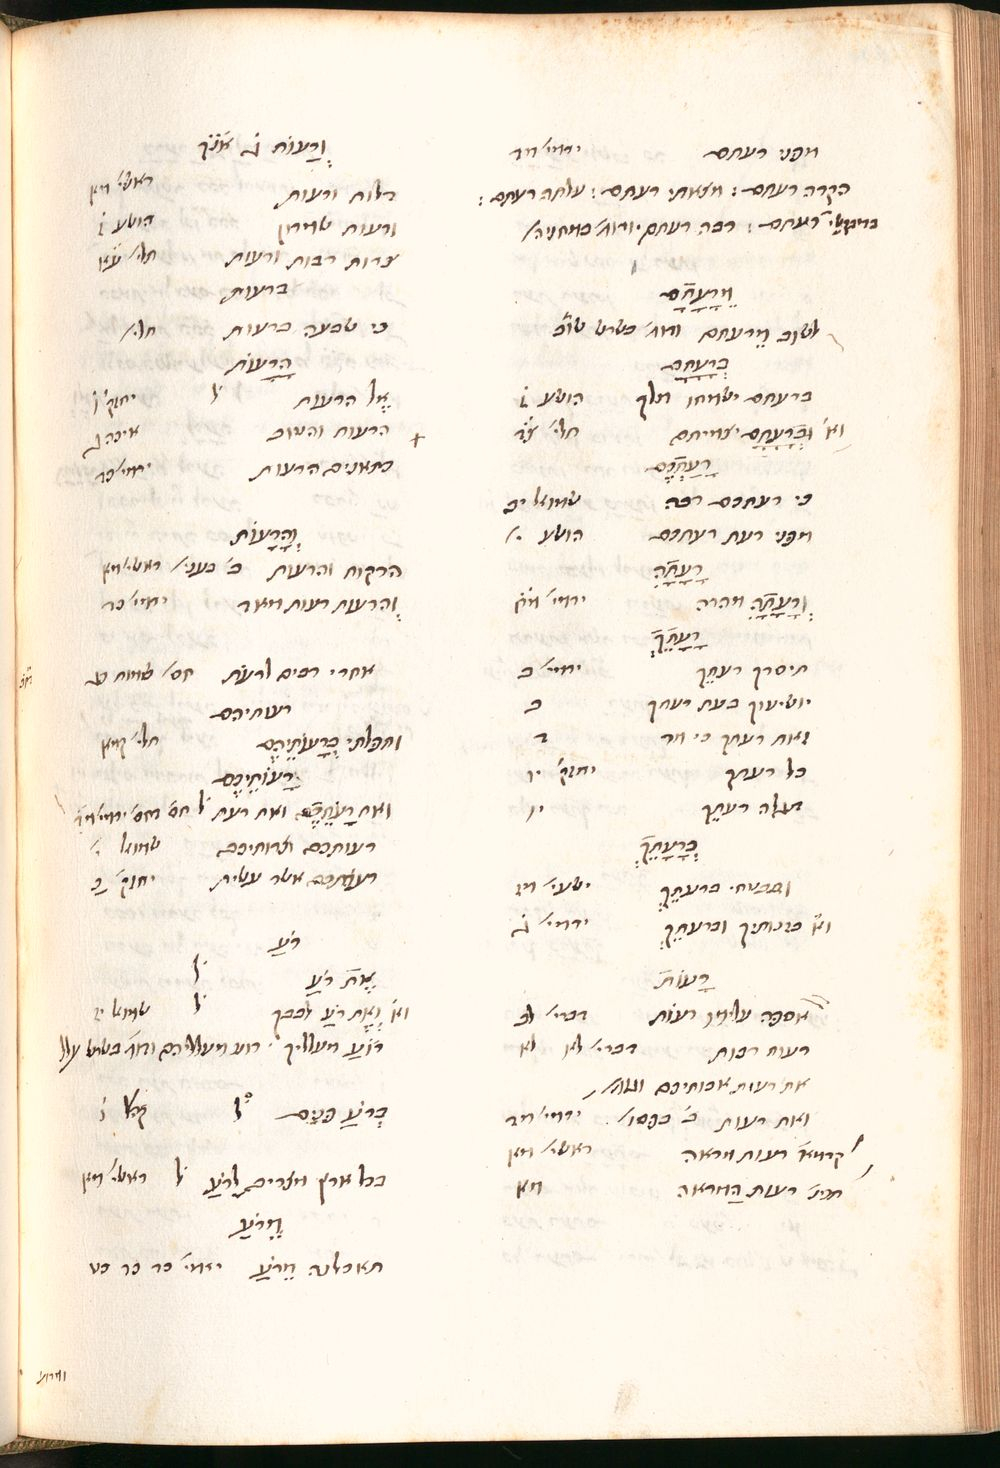 מפני רעתם ירמי׳ מד
הקרה רעתם : מצאתי רעתם : עלתה רעתם :
רעתם : רבה רעתם
מֵרָעָתָם
לשוב מֵרעתם
בְּרָעָתָם
ברעתם ישמחו מלך הושע ז
וא׳ וּבְרָעָתָם יצמיתם תלי׳ צד
רָעַתְכֶם
כי רעתכם רבה שמואל יב
מפני רעת רעתכם הושע י׳
רָעָתָהּ
וְרָעָתָהּ מהרה ירמי׳ מח
רָעָתֵךְ
תיסרך רעתֵך ירמי׳ ב
יושיעוך בעת רעתך ב
זאת רעתך כי מר ד
כל רעתך יחזק׳ יו
תגלה רעתֵך יו
בְּרָעָתֵךְ
ותבטחי ברעתֵךְ ישעי׳ מז
וא׳ בזנותיך וברעתֵךְ ירמי׳ ג
רָעוֹת
אספה עלימו רעוֹת דברי׳ לב
רעות רבות דברי׳ לא לא
את רעות אבותיכם
ואת רעות ב׳ בפסו׳ ירמי׳ מד
קדמא׳ רעות מראה ראשי׳ מא
תניי׳ רעות הַמראה מא
וְרָעוֹת ג
דלות ורעות ראשי׳ מא
ורעות שמרון הושע ז
צרות רבות ורעות תלי׳ עא
ברעות
כי שבעה ברעות תלי׳
הָרָעוֹת
אֶל הרעות ל׳ יחזק׳ ו
הרעות והטוב איכה ג
כתאנים הרעות ירמי׳ כד
וְהָרָעוֹת
הרקות והרעות ב׳ בעני׳ ראשי׳ מא
וְהרעות רעות מאד ירמי׳ כד
אחרי רבים לרעֹת חס׳ שמות
רעותיהם
ותפלתי בְּרָעוֹתֵיהֶם תלי׳ קמא
רָעוֹתֵיכֶם
ואת רָעֹתֵכֶם ואת רעת ל׳ חס׳
רעותכם וצרותיכם שמואל י׳
רעתכם אשר עשית יחזק׳ כ
רֹעַ
אֶת רֹעַ ל׳
וא׳ וְאֶת רֹעַ לבבך ל׳ שמואל יז
רוֹעַ מעלליך · רוע מעלליהם
בְּרֹעַ פנים ל׳ קהל׳ ז
בכל ארץ מצרים לָרֹעַ ל׳ ראשי׳ מא
מֵרֹעַ
תאכלנה מֵרֹעַ ירמי׳ כד כד כט
ומרוע